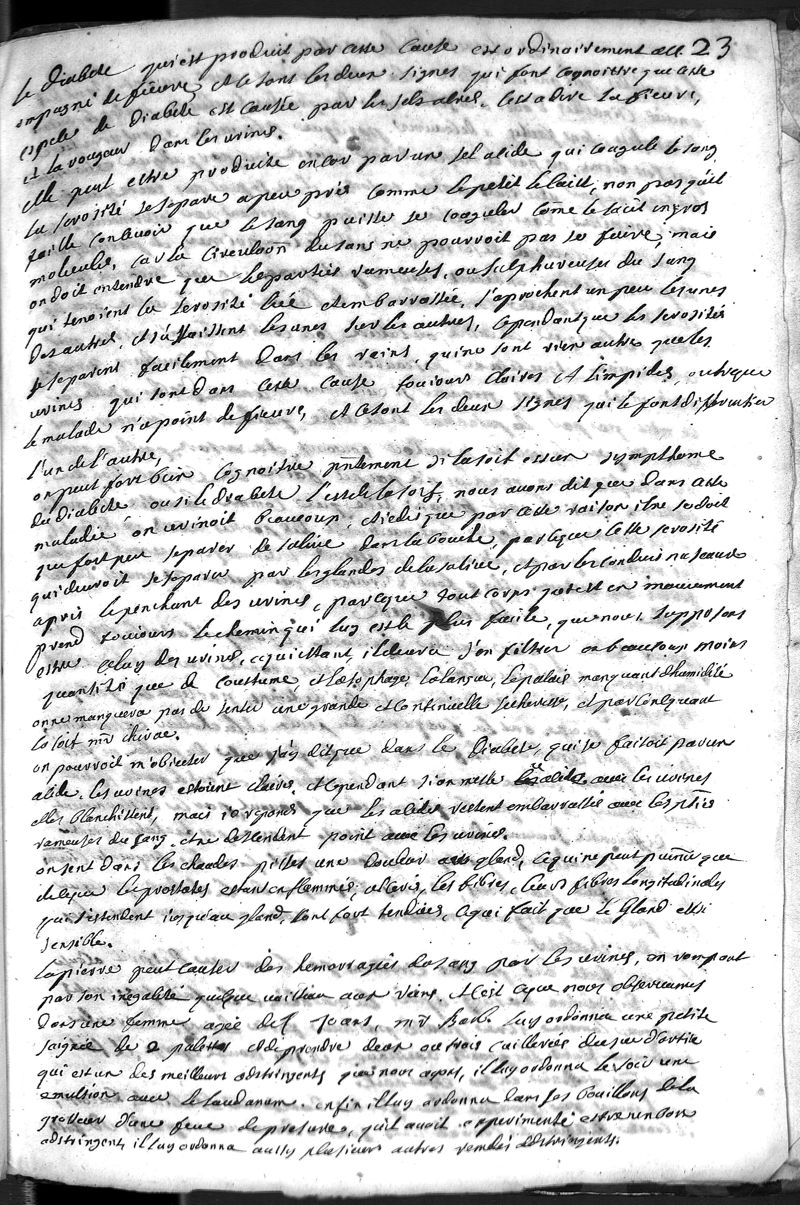 23
le diabete qui est produit par cette cause est ordinairement acc
ompagné de fievre, et ce sont les deux signes qui font cognoittre que cette
espece de diabete est causée par les sels acres. c'est a dire la fievre,
et la rougeur dans les urines.
elle peut estre produite encor par un sel acide qui coagule le sang
la serosité se separe a peu prés comme le petit lait, non pas qu'il
faille concevoir que le sang puisse se coaguler cõme le lait en gros
molecules, car la circulaõn du sang ne pourroit pas se faire, mais
on doit entendre que les parties rameuses, ou sulphureuses du sang
qui tenoient la serosité liée et embarrassée, s'aprochent un peu les unes
des autres, et s'affaissent les unes sur les autres, cependant que les serosités
se separent facilement dans les reins, qui ne sont rien autre que les
urines qui sont dans cette cause toujours claires et limpides, outre que
le malade n'a point de fievre, et ce sont les deux signes qui le font differentier
l'un de l'autre,
on peut fort bien cognoitre si la soif est un symptheme
du diabete ou si le diabete l'est de la soif, nous avons dit que dans cette
maladie on urinoit beaucoup, et que par cette raison il ne se doit
que fort peu separer de salive dans la bouche, parceque cette serosité
qui devroit se separer par les glandes de la salive, et par les conduis naseaux
apris le penchant des urines, parceque tout corps qui est en mouvement
prend toujours le chemin qui luy est le plus facile, que nous supposons
estre celuy des urines, ce qui estant, il devra s'en filtrer en beaucoup moins
quantité que de coustume, et l'esophage, la langue, le palais manquant d'humidité
on ne manquera pas de sentir une grande et continuelle secheresse, et par consequant
la soif mr chirac.
on pourroit m'obiecter que j'ay dit que dans le diabete, qui se faisoit par un
acide, les urines estoient claires, et cependant si on melle les acides avec les urines
elles blanchissent, mais je repons que les acides restent embarrassés avec les pties
rameuses du sang, et ne descendent point avec les urines.
on sent dans les chaudes pisses une douleur au gland, ce qui ne peut que
de ce que les prostates estant enflammées, les fibres, leurs fibres longitudinales
qui s'estendent jusqu'au gland, sont fort tendues, ce qui fait que le gland est si
sensible.
la pierre peut causer des hemorragies du sang par les urines, en rompant
par son inegalité quelque vaisseau aux reins, et c'est ce que nous observames
dans une femme agée de ans, mr Barb. luy ordonna une petite
saignée de 2 palettes et de prendre deux ou trois cuillerées du suc d'ortie
qui est un des meilleurs adstringents que nous ayons, il luy ordonna le soir une
emulsion avec le laudanum. enfin il luy ordonna dans ses bouillons de la
grosseur d'une feve de presure, qu'il avoit experimenté estre un bon
adstringent, il luy ordonna aussy plusieurs autres remedes adstringents.